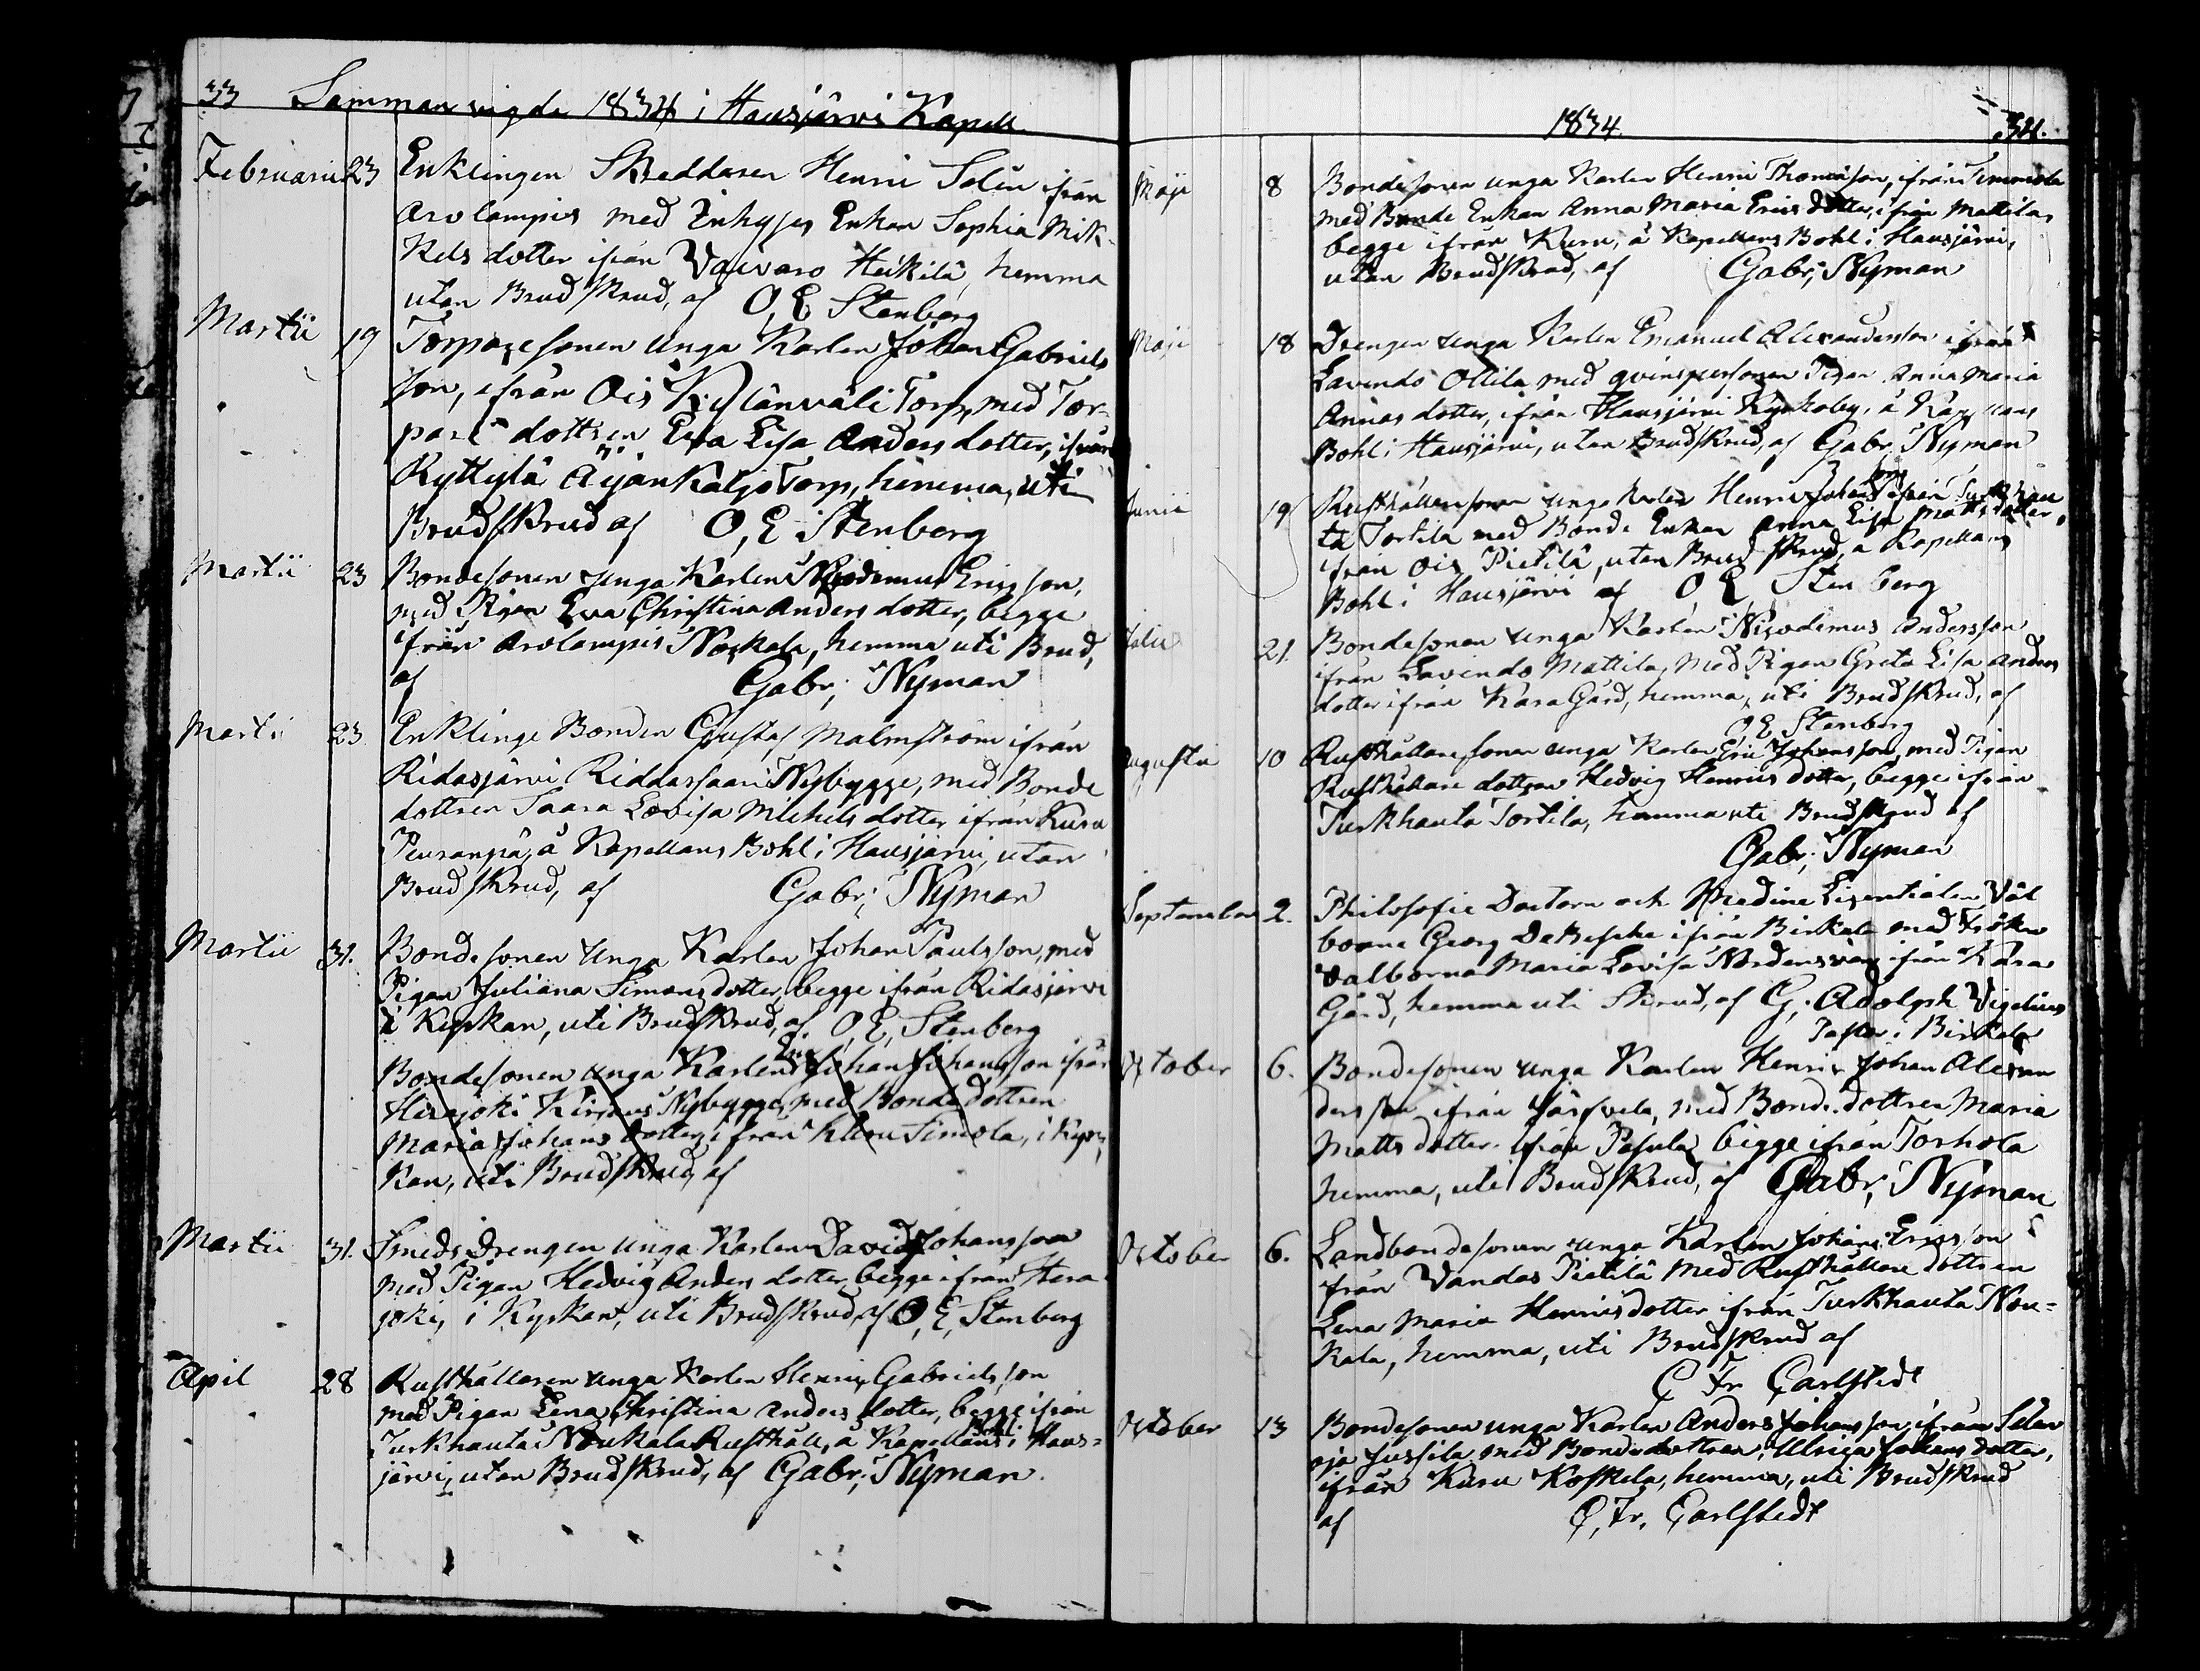 33 Sammanvigde 1834 i Hausjärvi Kapell
Februarii 23 Enklingen Skreddaren Henric Solin ifrån
Arolampis med Inhyses Enkan Sophia Mik-
kels dotter ifrån Vaivaro Heikilä, hemma
utan Brudskrud, af O, E Stenberg
Martii 19 Torparesonen unga Karlen Johan Gabriels
son, ifrån Ois Kylänväli Torp, med Tor-
pare dottren Eva Lisa Anders dotter, ifrån
Ryttylä Äijänkaljo Torp, hemma, uti
Brudskrud af O, E Stenberg
Martii 23 Bondesonen unga Karlen Nicodemus Ericsson,
med Pigan Eva Christina Anders dotter, begge
ifrån Arolampis Noukala, hemma uti Brud,
af Gabr; Nyman
Martii 23 Enklinge Bonden Gustaf Malmström ifrån
Ridasjärvi Riddassaari Nybygge, med Bonde
dottren Saara Lovisa Michels dotter ifrån Kuru
Peuranpä, å Kapellans Bohl i Hausjärvi, utan
Brudskrud, af Gabr; Nyman
Martii 31. Bondesonen unga Karlen Johan Paulsson, med
Pigan Juliana Simons dotter, begge ifrån Ridasjärvi
i Kyrkan, uti Brudskrud, af O, E, Stenberg
Bondesonen unga Karlen Johan Johansson ifrån
Herajoki Nybygge, med Bonde dottren
Maria Johans dotter, ifrån Kuru Simola, i Kyr-
kan, uti Brudskrud, af
Martii 31. Smeds Drengen unga Karlen David Johansson
med Pigan Hedvig Anders dotter, begge ifrån Hera
joki, i Kyrkan, uti Brudskrud, af O, E, Stenberg
Apil 28 Rusthållaren unga Karlen Henric Gabrielsson
med Pigan Lena Christina Anders dotter, begge ifrån
Turkhauta Noukala Rusthåll, å Kapellans Bohl i Haus-
järvi, utan Brudskrud, af Gabr; Nyman.
1834 34.
Maji 8 Bondesonen unga Karlen Henric Thomsson, ifrån Timmola
med Bonde Enkan Anna Maria Erics dotter, ifrån Mattila,
begge ifrån Kuru, å Kapellans Bohl i Hausjärvi,
utan Brudskrud, af Gabr; Nyman
Maji 18 Drengen unga Karlen Emanuel Alexandersson ifrån
Lavindo Ottila med qvinspersonen Pigan Anna Maria
Annas dotter, ifrån Hausjärvi Kyrkoby, å Kapellans
Bohl i Hausjärvi, utan Brudskrud, af Gabr. Nyman
Junii 19 Rusthållaresonen unga Karlen Henric Johansson ifrån Turkhau
ta Tortila med Bonde Enkan Anna Lisa Matts dotter,
ifrån Ois Pietilä, utan Brudskrud, å Kapellans
Bohl i Hausjärvi af O E Stenberg
Julii 21. Bondesonen unga Karlen Nicodemus Andersson
ifrån Lavindo Mattila, med Pigan Greta Lisa Anders
dotter ifrån Kara Gård, hemma, uti Brudskrud, af
O E Stenberg
Augusti 10 Rusthållaresonen unga Karlen Eric Johansson, med Pigan
Rusthållare dottren Hedvig Henrics dotter, begge ifrån
Turkhauta Tortila, hemma uti Brudskrud af
Gabr; Nyman
September 2. Philosofie Doctorn och Medicine Licentiaten Väl
borne Georg De Besche ifrån Birkala med Fröken
Välborna Maria Lovisa Nordensvan ifrån Kara
Gård, hemma uti Skrud, af G. Adolph Vigelius
Pastor i Birkala
October 6. Bondesonen unga Karlen Henric Johan Alexan
dersson ifrån med Bonde dottren Maria
Matts dotter ifrån Pasula begge ifrån Torhola
hemma, uti Brudskrud, af Gabr; Nyman
October 6. Landbondesonen unga Karlen Johan Ericsson i
från Vandas Pietilä med Rusthållare dottren
Lena Maria Henrics dotter ifrån Turkhauta Nou-
kala, hemma, uti Brudskrud af
C Fr Carlstedt
October 13 Bondesonen unga Karlen Anders Johansson, ifrån Selän
oja Jussila, med Bondedottren, Ulrica Johans dotter,
ifrån Kuru Koskela, hemma, uti Brudskrud
af C, Fr. Carlstedt